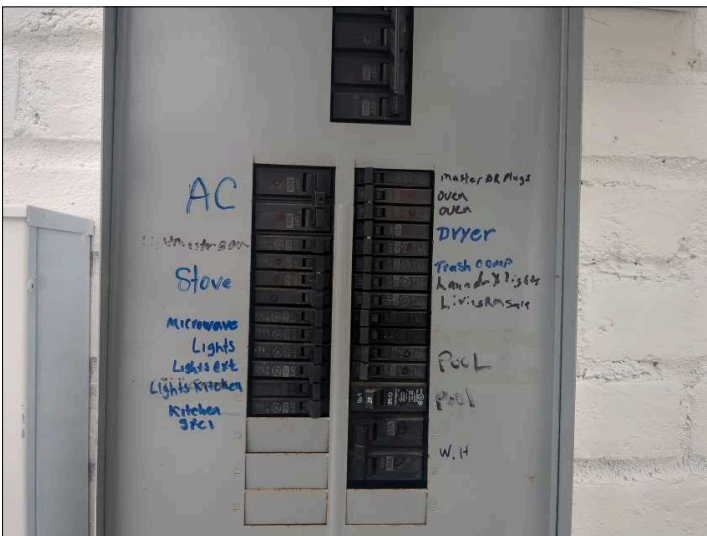 AC
Stove
Microwave
Lights
Lights ext
Lights Kitchen
Kitchen
gfci
master BR Plugs
oven
oven
Dryer
Trash comp
Laundry lights
PooL
Pool
W.H